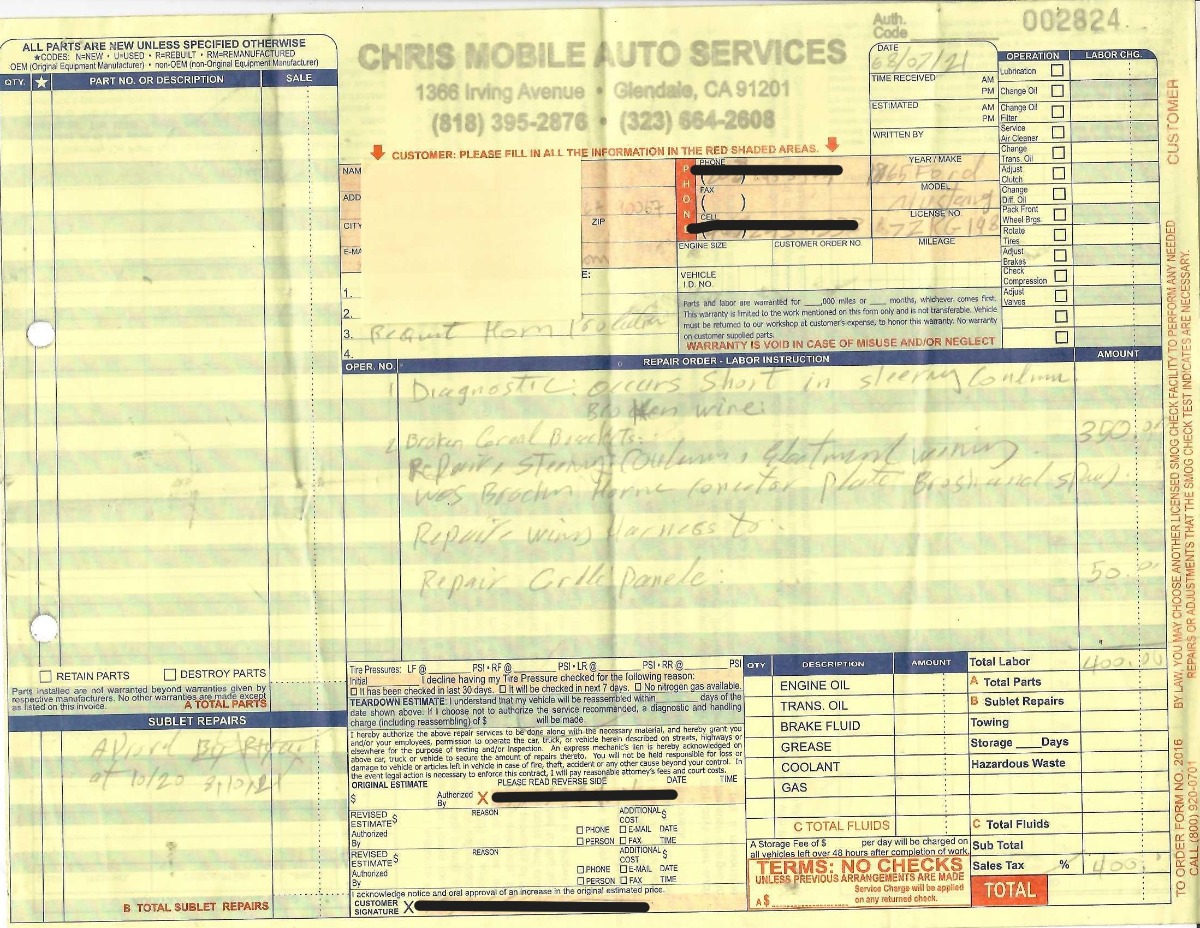 Auth. Code
002824
ALL PARTS ARE NEW UNLESS SPECIFIED OTHERWISE
★CODES: N=NEW • U=USED • R=REBUILT • RM=REMANUFACTURED
OEM (Original Equipment Manufacturer) • non-OEM (non-Original Equipment Manufacturer)
QTY. ★ PART NO. OR DESCRIPTION SALE
CHRIS MOBILE AUTO SERVICES
1366 Irving Avenue • Glendale, CA 91201
(818) 395-2876 • (323) 664-2608
CUSTOMER: PLEASE FILL IN ALL THE INFORMATION IN THE RED SHADED AREAS.
DATE
TIME RECEIVED AM PM
ESTIMATED AM PM
WRITTEN BY
YEAR / MAKE
1965 Ford
MODEL
Mustang
LICENSE NO.
MILEAGE
OPERATION LABOR CHG.
Lubrication
Change Oil
Change Oil Filter
Service Air Cleaner
Change Trans. Oil
Adjust Clutch
Change Diff. Oil
Pack Front Wheel Brgs.
Rotate Tires
Adjust Brakes
Check Compression
Adjust Valves
CUSTOMER
NAM
ADD
CITY
ZIP
E-MA
PHONE
PHONE
FAX
( )
CELL
ENGINE SIZE CUSTOMER ORDER NO.
E:
VEHICLE I.D. NO.
1.
2.
3. Request Horn
4.
Parts and labor are warranted for ___,000 miles or ___ months, whichever comes first.
This warranty is limited to the work mentioned on this form only and is not transferable. Vehicle
must be returned to our workshop at customer's expense, to honor this warranty. No warranty
on customer supplied parts.
WARRANTY IS VOID IN CASE OF MISUSE AND/OR NEGLECT
OPER. NO. REPAIR ORDER - LABOR INSTRUCTION AMOUNT
1 Diagnostic: occurs Short in steering Coulumn
Broken wire:
2 Broken Brackets: 350.00
Repair, steering Coulumn,
was Horne Plate
Repair wiring Harness to:
Repair Panele: 50.00
RETAIN PARTS DESTROY PARTS
Parts installed are not warranted beyond warranties given by
respective manufacturers. No other warranties are made except
as listed on this invoice.
A TOTAL PARTS
SUBLET REPAIRS
By
at 10/20
B TOTAL SUBLET REPAIRS
Tire Pressures: LF @ PSI • RF @ PSI • LR @ PSI • RR @ PSI
Initial I decline having my Tire Pressure checked for the following reason:
It has been checked in last 30 days. It will be checked in next 7 days. No nitrogen gas available.
TEARDOWN ESTIMATE: I understand that my vehicle will be reassembled within days of the
date shown above. If I choose not to authorize the service recommended, a diagnostic and handling
charge (including reassembling) of $ will be made.
I hereby authorize the above repair services to be done along with the necessary material, and hereby grant you
and/or your employees, permission to operate the car, truck, or vehicle herein described on streets, highways or
elsewhere for the purpose of testing and/or inspection. An express mechanic's lien is hereby acknowledged on
above car, truck or vehicle to secure the amount of repairs thereto. You will not be held responsible for loss or
damage to vehicle or articles left in vehicle in case of fire, theft, accident or any other cause beyond your control. In
the event legal action is necessary to enforce this contract, I will pay reasonable attorney's fees and court costs.
PLEASE READ REVERSE SIDE
ORIGINAL ESTIMATE DATE TIME
$ Authorized By X
REVISED ESTIMATE $ REASON ADDITIONAL COST $
Authorized By PHONE E-MAIL DATE
PERSON FAX TIME
REVISED ESTIMATE $ REASON ADDITIONAL COST $
Authorized By PHONE E-MAIL DATE
PERSON FAX TIME
I acknowledge notice and oral approval of an increase in the original estimated price.
CUSTOMER SIGNATURE X
QTY DESCRIPTION AMOUNT
ENGINE OIL
TRANS. OIL
BRAKE FLUID
GREASE
COOLANT
GAS
C TOTAL FLUIDS
A Storage Fee of $ per day will be charged on
all vehicles left over 48 hours after completion of work.
TERMS: NO CHECKS
UNLESS PREVIOUS ARRANGEMENTS ARE MADE
A $ Service Charge will be applied
on any returned check.
Total Labor 400.00
A Total Parts
B Sublet Repairs
Towing
Storage ___ Days
Hazardous Waste
C Total Fluids
Sub Total
Sales Tax %
400.
TOTAL
BY LAW, YOU MAY CHOOSE ANOTHER LICENSED SMOG CHECK FACILITY TO PERFORM ANY NEEDED
REPAIRS OR ADJUSTMENTS THAT THE SMOG CHECK TEST INDICATES ARE NECESSARY.
TO ORDER FORM NO. 2016
CALL (800) 920-0701